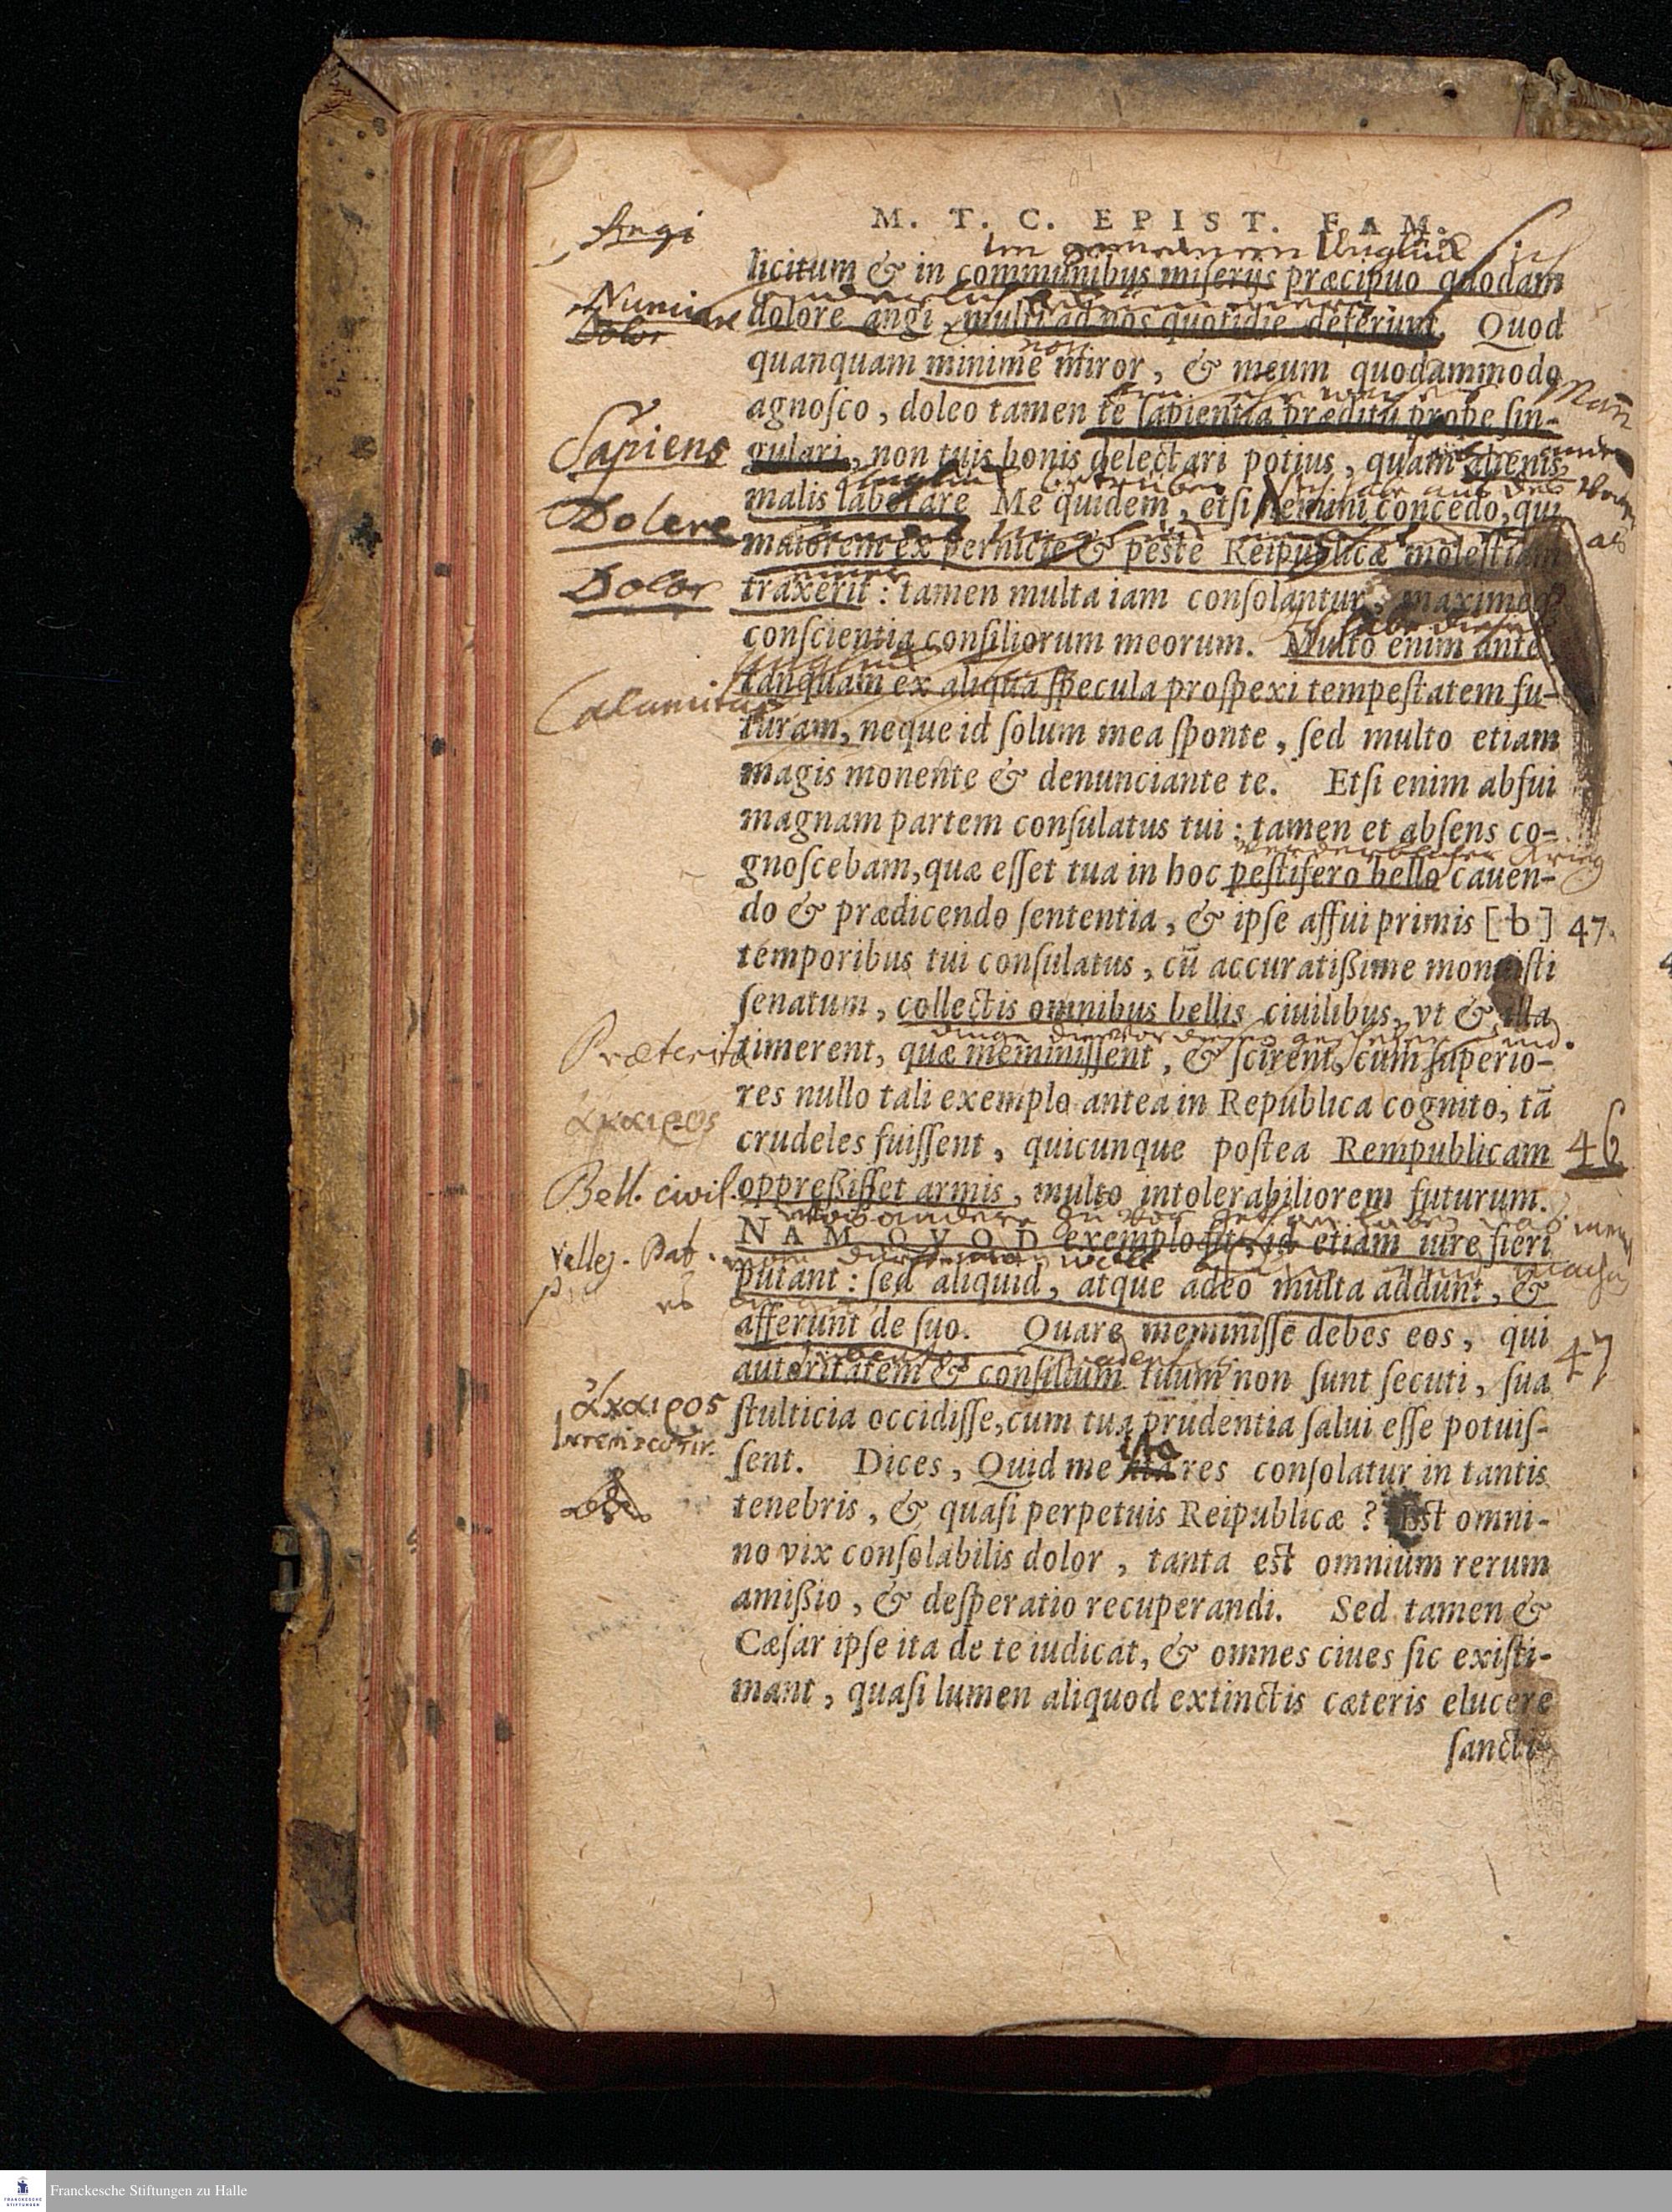 M. T. C. EPIST. FAM.
Angi
Im gemeinem Unglück sich
licitum & in communibus miserijs præcipuo quodam
Nunciare
Dolor
dolore angi, multi ad nos quotidie deferunt. Quod
non
quanquam minime miror, & meum quodammodo
Mañ
agnosco, doleo tamen te sapientia præditũ prope sin-
Sapiens
gulari, non tuis bonis delectari potius, quam alienis
betrüben
Dolere
malis laborare Me quidem, etsi nemini concedo, qui
als
maiorem ex pernicie & peste Reipublicæ molestiam
Dolor
traxerit: tamen multa iam consolantur, maximeq́;
conscientia consiliorum meorum. Multo enim ante
Unglück
Calamitas
tanquam ex aliqua specula prospexi tempestatem fu-
turam, neque id solum mea sponte, sed multo etiam
magis monente & denunciante te. Etsi enim abfui
magnam partem consulatus tui: tamen et absens co-
verderblicher Krieg
gnoscebam, quæ esset tua in hoc pestifero bello cauen-
do & prædicendo sententia, & ipse affui primis [b] 47.
temporibus tui consulatus, cũ accuratißime monuisti
senatum, collectis omnibus bellis ciuilibus, vt & illa
dinge die vor diesen geschehen sind.
Præterita
timerent, quæ meminissent, & scirent, cum superio-
res nullo tali exemplo antea in Republica cognito, tã
ἄκαιρος
crudeles fuissent, quicunque postea Rempublicam 46
Bell. civil.
oppreßisset armis, multo intolerabiliorem futurum.
was andere zu vor gethan haben
NAM QVOD exemplo fit, id etiam iure fieri
Vellej. Pat.
putant: sed aliquid, atque adeo multa addunt, &
afferunt de suo. Quare meminisse debes eos, qui
47
autoritatem & consilium tuum non sunt secuti, sua
ἄκαιρος
stulticia occidisse, cum tua prudentia salui esse potuis-
ista
sent. Dices, Quid me ita res consolatur in tantis
tenebris, & quasi perpetuis Reipublicæ? Est omni-
no vix consolabilis dolor, tanta est omnium rerum
amißio, & desperatio recuperandi. Sed tamen &
Cæsar ipse ita de te iudicat, & omnes ciues sic existi-
mant, quasi lumen aliquod extinctis cæteris elucere
sancti-
Franckesche Stiftungen zu Halle